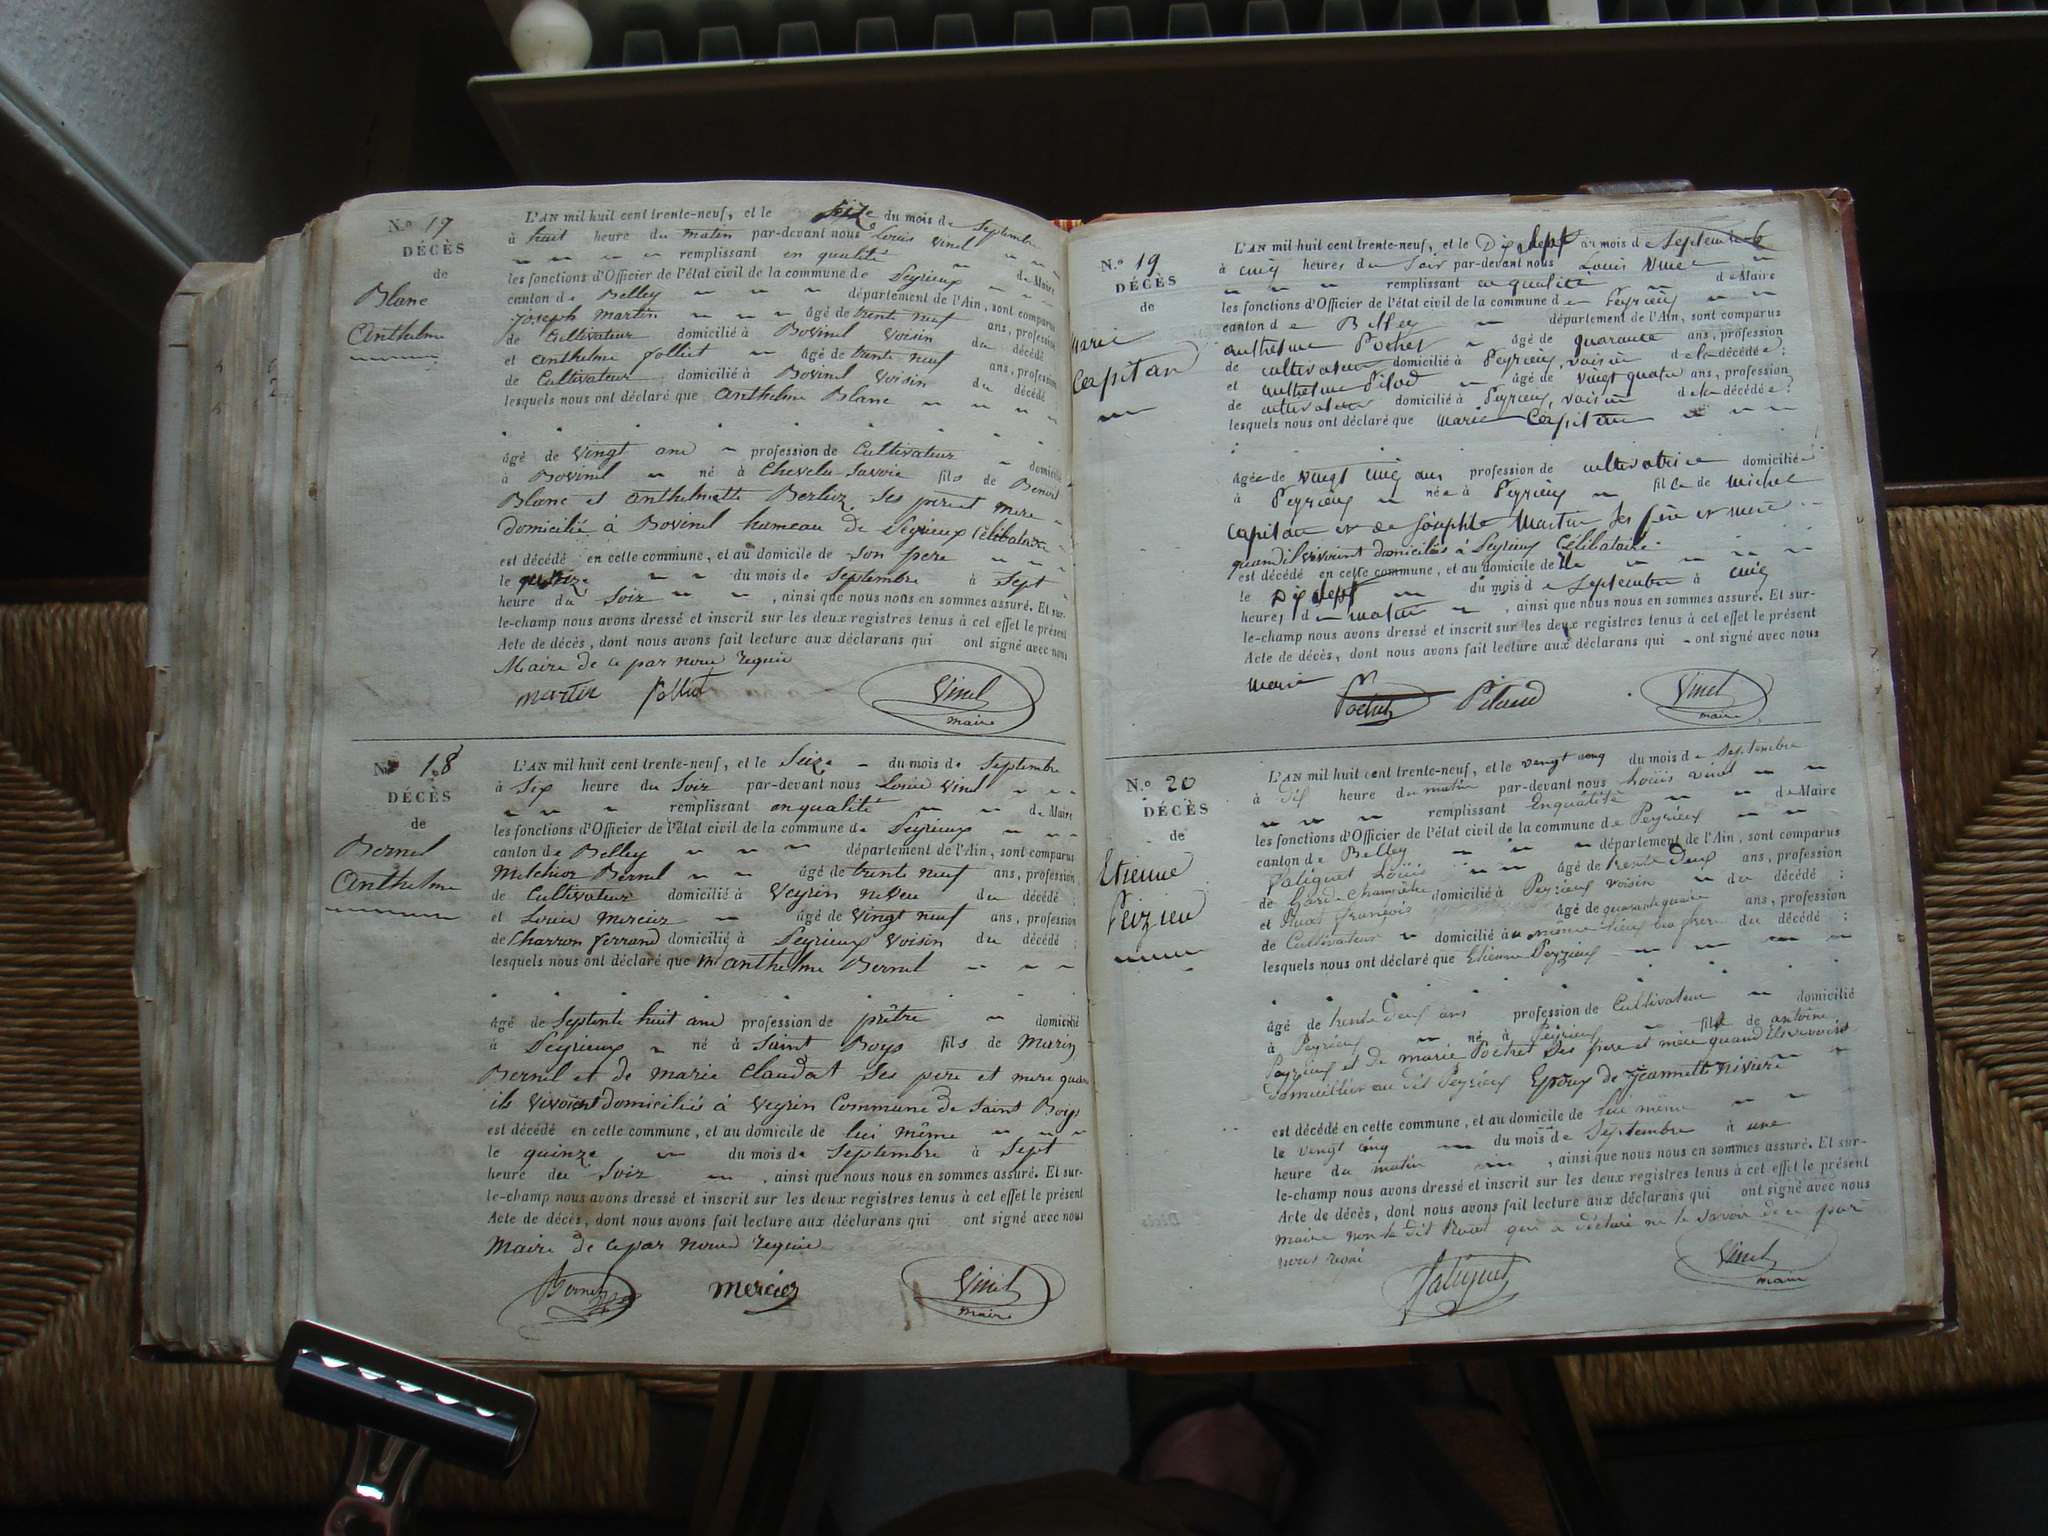 N.º 17
DÉCÈS
de
Blanc
Anthelme
L'AN mil huit cent trente-neuf, et le seize du mois de Septembre
à huit heure du matin par-devant nous Louis Vinel
remplissant en qualité de Maire
les fonctions d'Officier de l'état civil de la commune de Peyrieux
canton de Belley département de l'Ain, sont comparus
joseph Martin âgé de trente neuf ans, profession
de Cultivateur domicilié à Bovinel Voisin du décédé
et anthelme folliet âgé de trente neuf ans, profession
de Cultivateur domicilié à Bovinel Voisin du décédé
lesquels nous ont déclaré que Anthelme Blanc
âgé de Vingt ans profession de Cultivateur domicilié
à Bovinel né à Chevelu Savoie fils de Benoit
Blanc et Anthelmette Berlioz Ses pere et mere
domicilié à Bovinel hameau de Peyrieux Célibataire
est décédé en cette commune, et au domicile de Son pere
le quinze du mois de Septembre à Sept
heure du Soir , ainsi que nous nous en sommes assuré. Et sur-
le-champ nous avons dressé et inscrit sur les deux registres tenus à cet effet le présent
Acte de décès, dont nous avons fait lecture aux déclarans qui ont signé avec nous
Maire de ce par nous requis
martin folliet Vinel
maire
N.º 18
DÉCÈS
de
Bernel
Anthelme
L'AN mil huit cent trente-neuf, et le Seize du mois de Septembre
à Six heure du Soir par-devant nous Louis Vinel
remplissant en qualité de Maire
les fonctions d'Officier de l'état civil de la commune de Peyrieux
canton de Belley département de l'Ain, sont comparus
Melchior Bernel âgé de trente neuf ans, profession
de Cultivateur domicilié à Veyrin neveu du décédé ;
et Louis Mercier âgé de Vingt neuf ans, profession
de Charron ferrand domicilié à Peyrieux Voisin du décédé ;
lesquels nous ont déclaré que Anthelme Bernel
âgé de Septente huit ans profession de prêtre domicilié
à Peyrieux né à Saint Boys fils de Marin
Bernel et de marie Claudat Ses pere et mere quand
ils vivoient domiciliés à Veyrin Commune de Saint Boys
est décédé en cette commune, et au domicile de lui même
le quinze du mois de Septembre à Sept
heure du Soir , ainsi que nous nous en sommes assuré. Et sur-
le-champ nous avons dressé et inscrit sur les deux registres tenus à cet effet le présent
Acte de décès, dont nous avons fait lecture aux déclarans qui ont signé avec nous
Maire de ce par nous requis
Bernel mercier Vinel
maire
N.º 19
DÉCÈS
de
Marie
Capitan
L'AN mil huit cent trente-neuf, et le Dix Sept du mois de Septembre
à cinq heures du Soir par-devant nous Louis Vinel
remplissant en qualité de Maire
les fonctions d'Officier de l'état civil de la commune de Peyrieux
canton de Belley département de l'Ain, sont comparus
anthelme Pochet âgé de quarante ans, profession
de cultivateur domicilié à Peyrieux, voisin de la décédée ;
et anthelme Pilod âgé de vingt quatre ans, profession
de cultivateur domicilié à Peyrieux, voisin de la décédée ;
lesquels nous ont déclaré que Marie Capitan
âgée de vingt cinq ans profession de cultivatrice domiciliée
à Peyrieux née à Peyrieux fille de Michel
Capitan et de Josephte Martin Ses père et mère
quand ils vivoient domiciliés à Peyrieux Célibataire
est décédé en cette commune, et au domicile de
le Dix Sept du mois de Septembre à cinq
heures du matin , ainsi que nous nous en sommes assuré. Et sur-
le-champ nous avons dressé et inscrit sur les deux registres tenus à cet effet le présent
Acte de décès, dont nous avons fait lecture aux déclarans qui ont signé avec nous
Maire
Pochet Pilaud Vinel
maire
N.º 20
DÉCÈS
de
Etienne
Peizieu
L'AN mil huit cent trente-neuf, et le vingt cinq du mois de Septembre
à dix heure du matin par-devant nous Louis Vinel
remplissant En qualité de Maire
les fonctions d'Officier de l'état civil de la commune de Peyrieux
canton de Belley département de l'Ain, sont comparus
Patiquet Louis âgé de trente deux ans, profession
de Garde Champêtre domicilié à Peyrieux voisin du décédé ;
et françois âgé de quarante quatre ans, profession
de Cultivateur domicilié au même lieu du décédé ;
lesquels nous ont déclaré que Etienne Peyzieux
âgé de trente deux ans profession de Cultivateur domicilié
à Peyrieux né à Peyrieux fils de antoine
Peyzieux et de marie Pochet Ses pere et mère quand ils vivoint
domicilier au dit Peyrieux Epoux de Jeannette Riviere
est décédé en cette commune, et au domicile de lui même
le vingt cinq du mois de Septembre à une
heure du matin , ainsi que nous nous en sommes assuré. Et sur-
le-champ nous avons dressé et inscrit sur les deux registres tenus à cet effet le présent
Acte de décès, dont nous avons fait lecture aux déclarans qui ont signé avec nous
maire non le dit qui a déclaré ne le savoir de ce par
nous requi
Patiquet Vinel
maire